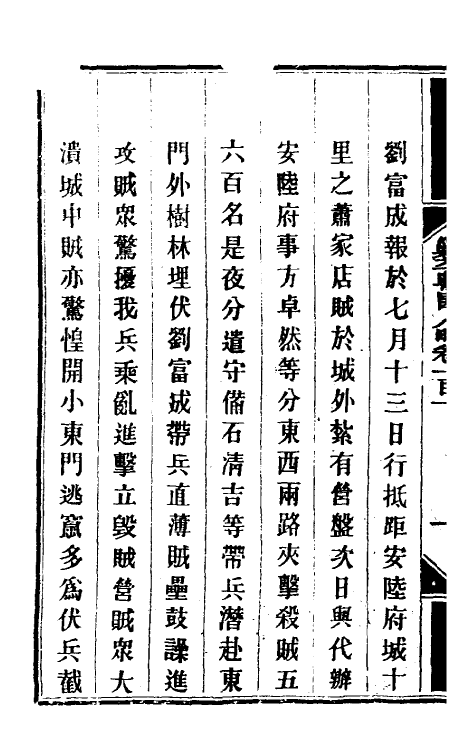 劉富成報於七月十三日行抵距安陸府城十
里之蕭家店賊於城外紮有營盤次日與代辦
安陸府事方卓然等分東西兩路夾擊殺賊五
六百名是夜分遣守備石清吉等帶兵潛赴東
門外樹林埋伏劉富成帶兵直薄賊壘鼓譟進
攻賊眾驚擾我兵乘亂進擊立毀賊營賊眾大
潰城中賊亦驚惶開小東門逃竄多為伏兵截
卷一百一
一